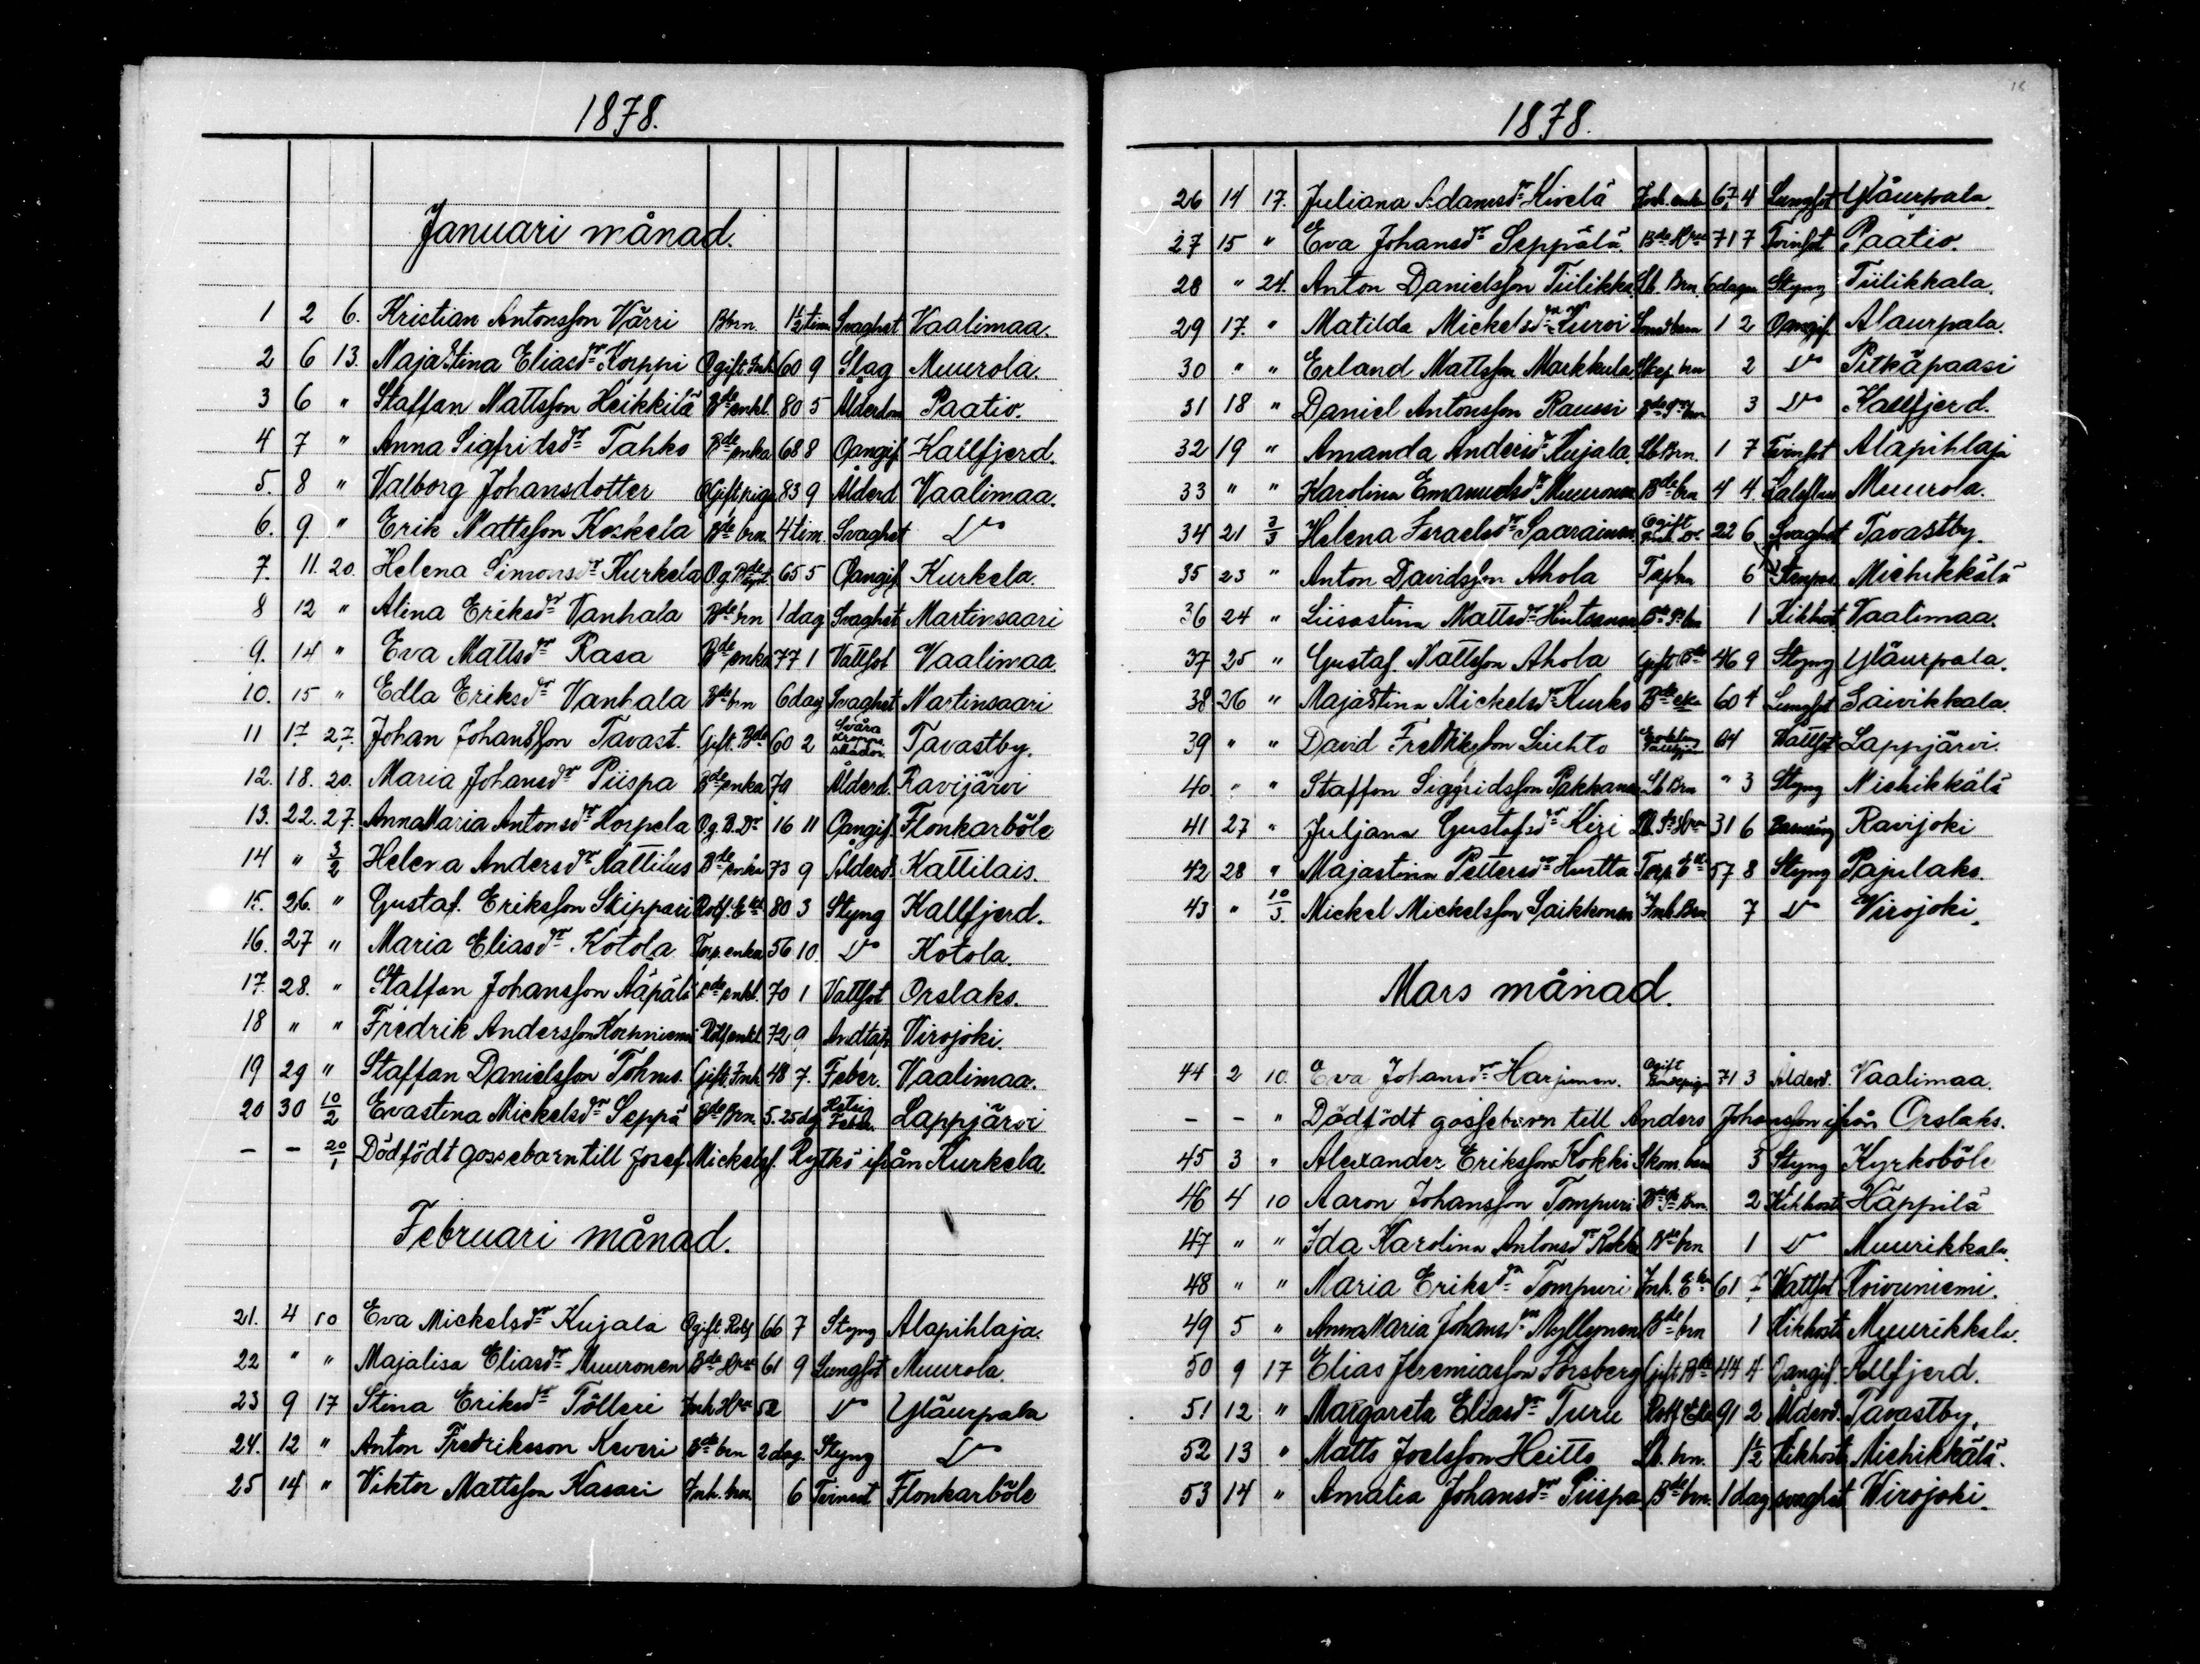 1878.
Januari månad.
1 2 6. Kristian Antonsson Värri Bbrn. 1½ tim Svaghet Vaalimaa.
2 6 13. Maja Stina Eliasdr Korppi Ogift Inh. 60 9 Slag Muurola.
3 6 " Staffan Mattsson Heikkilä Bde enkl. 80 5 Ålderdom Paatio.
4 7 " Anna Sigfridsdr Tahko Bde enka 68 8 Oangif. Kallfjerd.
5. 8 " Valborg Johansdotter Ogift piga 83 9 Ålderd. Vaalimaa.
6. 9. " Erik Mattsson Koskela Bde brn. 4 tim. Svaghet Do
7. 11. 20. Helena Simonsdr Kurkela Og. Bde 65 5 Oangif. Kurkela.
8 12 " Alina Eriksdr Vanhala Bde brn 1 dag Svaghet Martinsaari
9. 14 " Eva Mattsdr Rasa Bde enka 77 1 Vattsot Vaalimaa.
10. 15 " Edla Eriksdr Vanhala Bde brn 6 dag Svaghet Martinsaari
11 17 27. Johan Johansson Tavast. Gift. Bde 60 2 Svåra kropps skador. Tavastby.
12. 18. 20. Maria Johansdr Piispa Bde enka 79 Ålderd. Ravijärvi
13. 22. 27. Anna Maria Antonsdr Horpela Og. B. Dr 16 11 Oangif. Flonkarböle
14 " 3/2 Helena Andersdr Kattilus Bde enka 73 9 Ålderd. Kattilais.
15. 26. " Gustaf. Eriksson Skippari Rotf. 80 3 Styng Kallfjerd.
16. 27 " Maria Eliasdr Kotola Torp. enka 56 10. Do Kotola.
17. 28. " Staffan Johansson Ääpälä Bde enkl. 70 1 Vattsot Orslaks.
18 " " Fredrik Andersson Korpniemi Rotf enkl. 72 9 Andtäp. Virojoki.
19 29 " Staffan Danielsson Tohmo. Gift. Inh. 48 7. Feber. Vaalimaa.
20 30 10/2 Evastina Mickelsdr Seppä Bde Brn. 5. 25 dg Lappjärvi
– – 20/1 Dödfödt gossebarn till Josef Mickelsf. Rytkö ifrån Kurkela.
Februari månad.
21. 4 10 Eva Mickelsdr Kujala Ogift Rotf 66 7 Styng Alapihlaja.
22 " " Majalisa Eliasdr Muuronen Bde Hru 61 9 Lungsot Muurola.
23 9 17 Stina Eriksdr Tölleri Inh Hru 52 Do Yläurpala
24. 12 " Anton Fredriksson Keveri Bde brn 2 dag. Styng Do
25 14 " Viktor Mattsson Kasari Inh. brn. 6 Tvinsot Flonkarböle
1878.
26 14 17. Juliana Adamsdr Kivelä Inh. enka 67 4 Lungsot Yläurpala.
27 15 " Eva Johansdr Seppälä. Bde Hru 71 7 Tvinsot Paatio.
28 " 24. Anton Danielsson Tiilikka. Lb. Brn. 6 dagar Styng Tiilikkala.
29 17. " Matilda Mickelsdr Kurvi 1 2 Oangif. Alaurpala.
30 " " Erland Mattsson Markkula brn 2 Do Pitkäpaasi
31 18 " Daniel Antonsson Raussi 3 Do Kallfjerd.
32 19 " Amanda Andersdr Kujala. Lb Brn. 1 7 Tvinsot Alapihlaja
33 " " Karolina Emanuelsdr Muuronen Bde brn 4 4 Muurola.
34 21 3/3 Helena Israelsdr Saarainen Ogift 22 6 Svaghet Tavastby.
35 23 " Anton Davidsson Ahola 6 Miehikkälä
36 24 " Liisastina Mattsdr 1 Kikhost. Vaalimaa.
37 25 " Gustaf. Mattsson Ahola Gift. Bde 46 9 Styng Yläurpala.
38 26 " Majastina Mickelsdr Kurko Bde 60 4 Lungsot Saivikkala.
39 " " David Fredriksson Liehto 64 Vattsot Lappjärvi.
40. " " Staffan Sigfridsson Pakkanen Lb Brn " 3 Styng Miehikkälä
41 27 " Juljana Gustafsdr Kiri 31 6 Ravijoki
42 28 " Majastina Pettersdr Hurtta Torp. 57 8 Styng Pajulaks.
43 " 10/3 Mickel Mickelsson Saikkonen Inh. Brn 7 Do Virojoki.
Mars månad.
44 2 10. Eva Johansdr Harjunen. Ogift 71 3 Ålderd. Vaalimaa.
– – " Dödfödt gossebarn till Anders Johansson ifrån Orslaks.
45 3 " Alexander Eriksson Kokki Skom. barn 3 Styng Kyrkoböle
46 4 10 Aaron Johansson Tompuri 2 Kikhost Häppilä
47 " " Ida Karolina Antonsdr Kokki Bde brn 1 Do Muurikkala.
48 " " Maria Eriksdr Tompuri Inh. 61 7 Vattsot Koivuniemi.
49 5 " Anna Maria Johansdr Myllynen Bde brn 1 Kikhosta Muurikkala.
50 9 17 Elias Jeremiasson Forsberg Gift Bde 44 4 Oangif. Kllfjerd.
51 12 " Margareta Eliasdr Turu Rotf. 91 2 Ålderd. Tavastby.
52 13 " Matts Joelsson Heitto Lb. brn. 1½ Kikhosta Miehikkälä.
53 14 " Amalia Johansdr Piispa Bde brn. 1 dag svaghet Wirojoki.